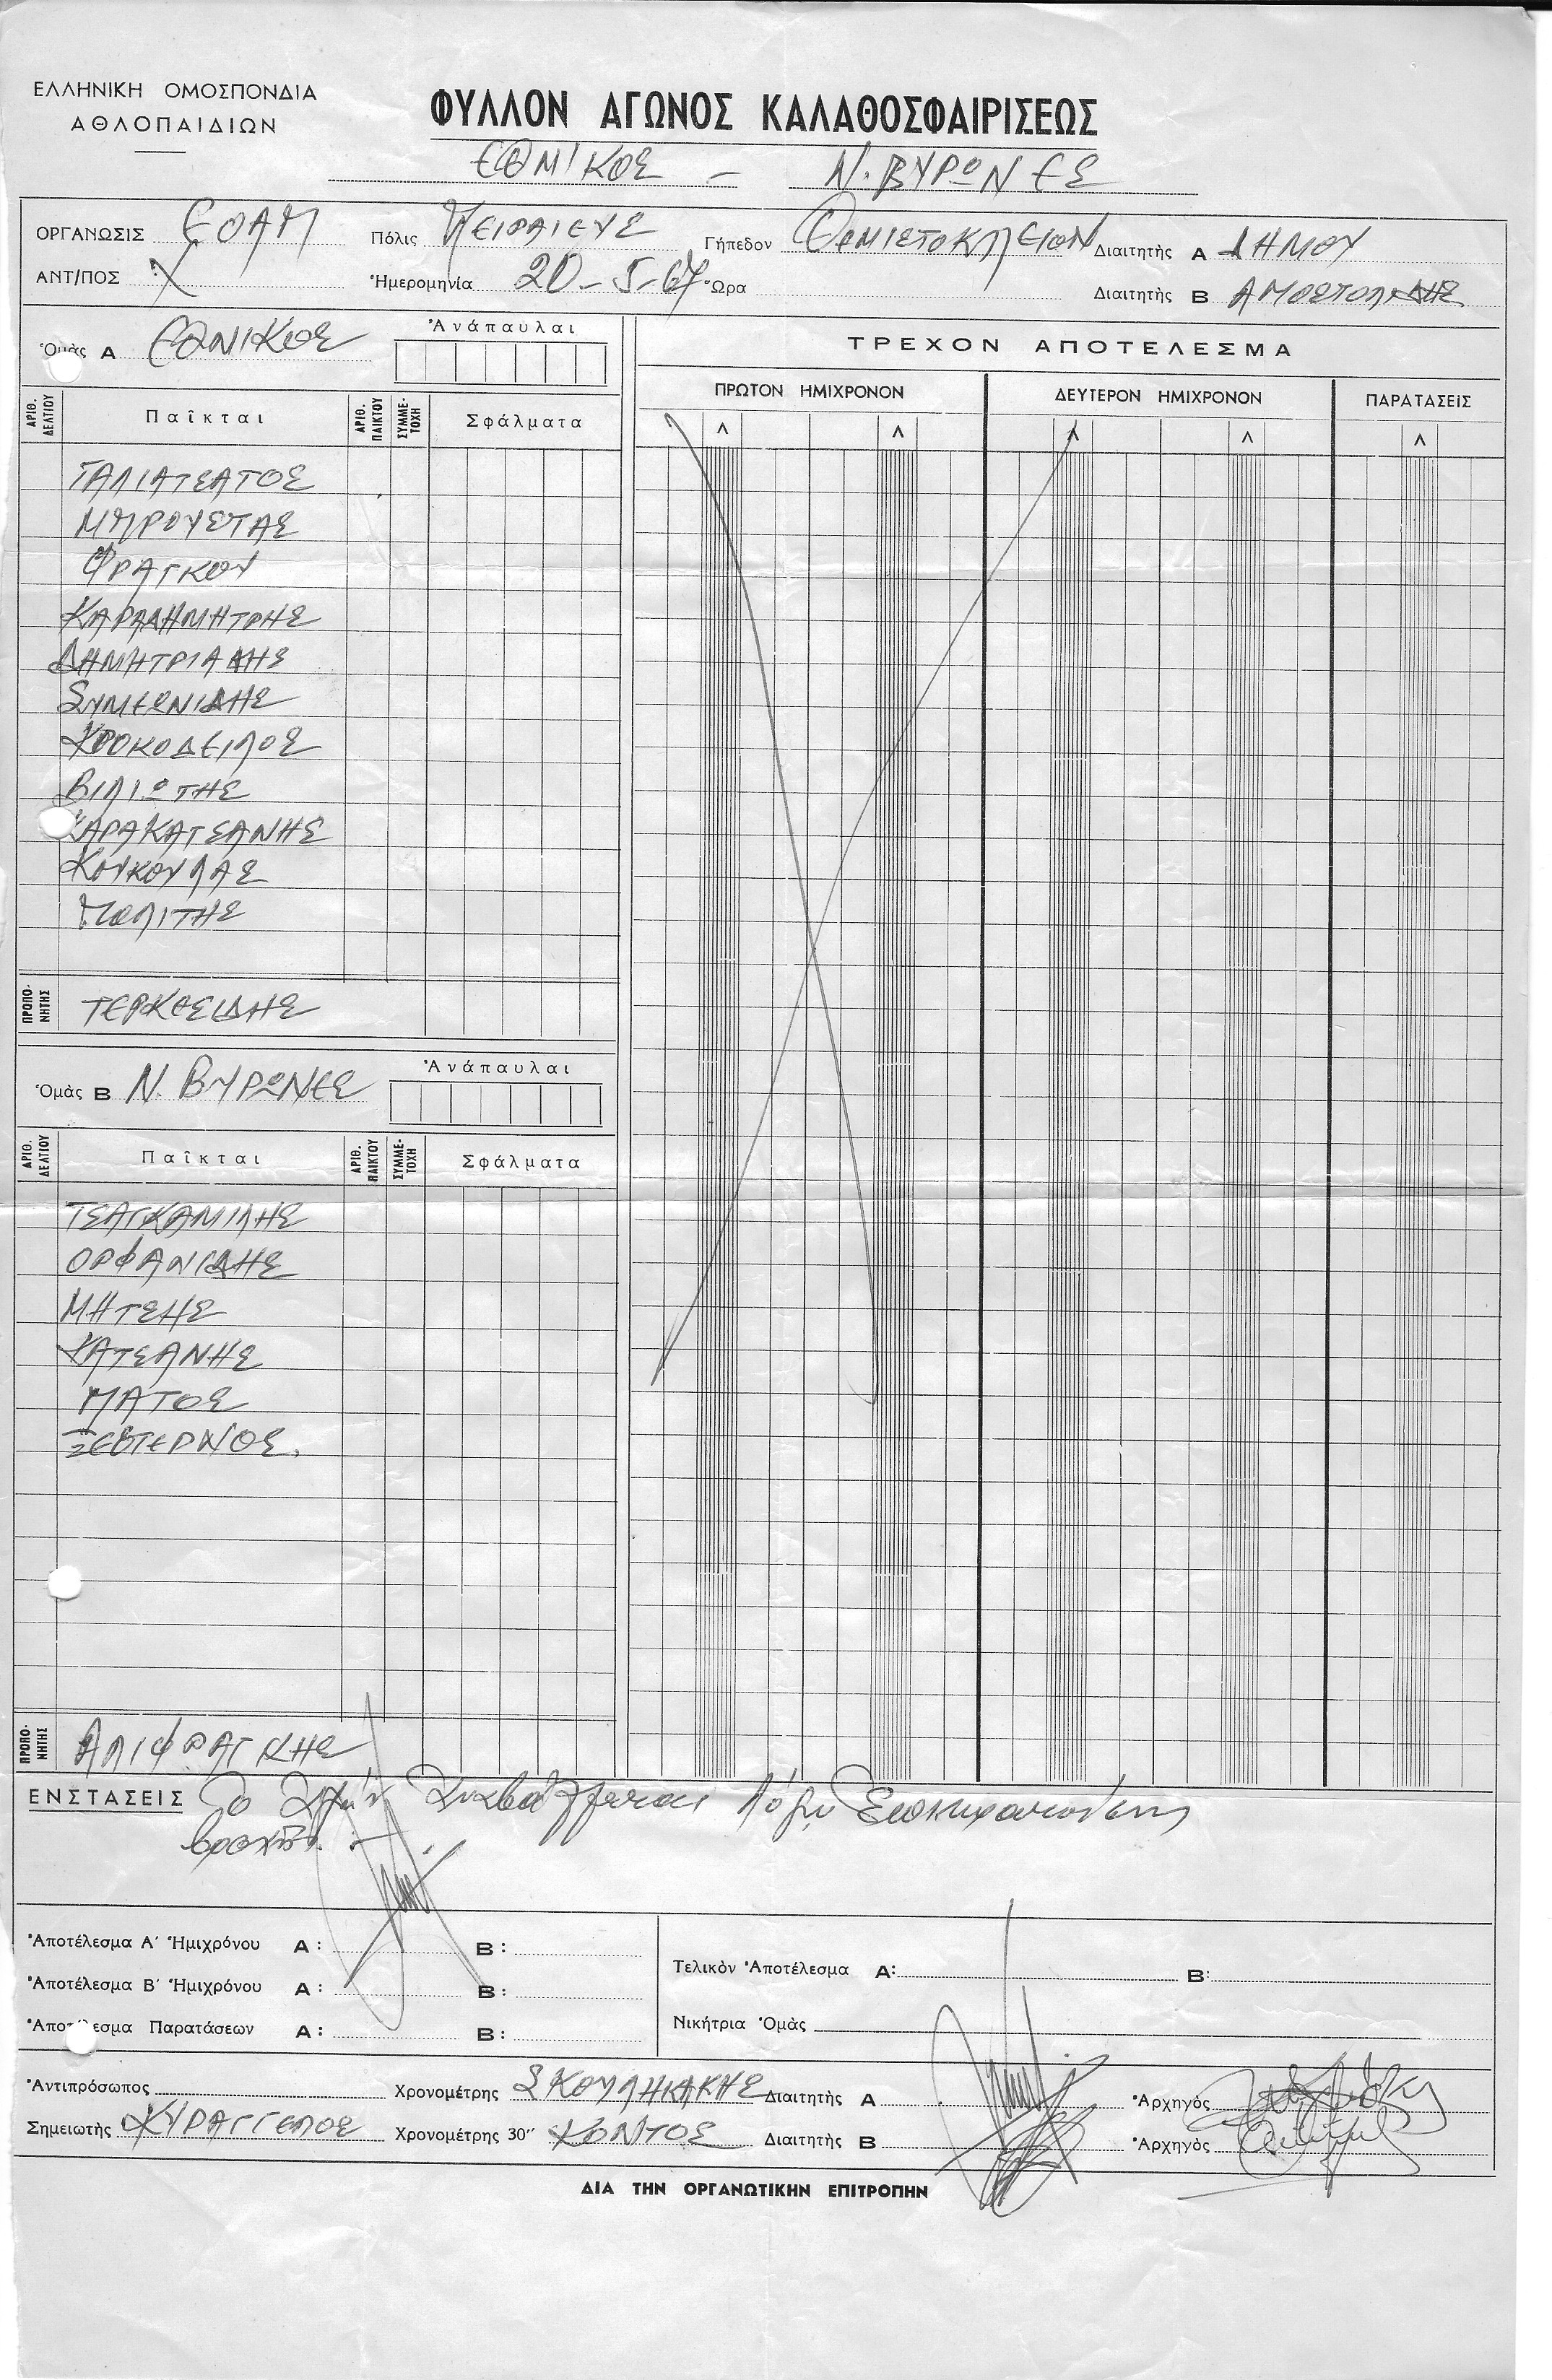 ΕΛΛΗΝΙΚΗ ΟΜΟΣΠΟΝΔΙΑ
ΑΘΛΟΠΑΙΔΙΩΝ
ΦΥΛΛΟΝ ΑΓΩΝΟΣ ΚΑΛΑΘΟΣΦΑΙΡΙΣΕΩΣ
ΕΘΝΙΚΟΣ – Ν. ΒΥΡΩΝΕΣ
ΟΡΓΑΝΩΣΙΣ ΕΟΑΠ Πόλις ΠΕΙΡΑΙΕΥΣ Γήπεδον ΘΕΜΙΣΤΟΚΛΕΙΟΝ Διαιτητὴς Α ΔΗΜΟΥ
ΑΝΤ/ΠΟΣ Χ Ἡμερομηνία 20-5-67 Ὥρα Διαιτητὴς Β ΑΠΟΣΤΟΛΙΔΗΣ
Ὁμὰς Α ΕΘΝΙΚΟΣ Ἀνάπαυλαι
ΑΡΙΘ. ΔΕΛΤΙΟΥ Παῖκται ΑΡΙΘ. ΠΑΙΚΤΟΥ ΣΥΜΜΕ-ΤΟΧΗ Σφάλματα
ΓΑΛΙΑΤΣΑΤΟΣ
ΜΠΡΟΥΣΤΑΣ
ΦΡΑΓΚΟΥ
ΚΑΡΑΔΗΜΗΤΡΗΣ
ΔΗΜΗΤΡΙΑΔΗΣ
ΣΥΜΕΩΝΙΔΗΣ
ΚΡΟΚΟΔΕΙΛΟΣ
ΒΙΛΙΩΤΗΣ
ΚΑΡΑΚΑΤΣΑΝΗΣ
ΚΟΥΚΟΥΛΑΣ
ΠΟΛΙΤΗΣ
ΠΡΟΠΟ-ΝΗΤΗΣ ΤΕΡΚΕΣΙΔΗΣ
Ὁμὰς Β Ν. ΒΥΡΩΝΕΣ Ἀνάπαυλαι
ΑΡΙΘ. ΔΕΛΤΙΟΥ Παῖκται ΑΡΙΘ. ΠΑΙΚΤΟΥ ΣΥΜΜΕ-ΤΟΧΗ Σφάλματα
ΤΣΑΓΚΑΜΙΛΗΣ
ΟΡΦΑΝΙΔΗΣ
ΜΗΤΣΗΣ
ΚΑΤΣΑΝΗΣ
ΜΑΤΟΣ
ΞΕΦΤΕΡΝΟΣ.
ΠΡΟΠΟ-ΝΗΤΗΣ ΑΛΙΦΡΑΓΚΗΣ
ΤΡΕΧΟΝ ΑΠΟΤΕΛΕΣΜΑ
ΠΡΩΤΟΝ ΗΜΙΧΡΟΝΟΝ ΔΕΥΤΕΡΟΝ ΗΜΙΧΡΟΝΟΝ ΠΑΡΑΤΑΣΕΙΣ
Λ Λ Λ Λ Λ
ΕΝΣΤΑΣΕΙΣ Ο Ἀγών λόγω
βροχῆς.
Ἀποτέλεσμα Α′ Ἡμιχρόνου Α: Β:
Ἀποτέλεσμα Β′ Ἡμιχρόνου Α: Β:
Ἀποτέλεσμα Παρατάσεων Α: Β:
Τελικὸν Ἀποτέλεσμα Α: Β:
Νικήτρια Ὁμὰς
Ἀντιπρόσωπος Χρονομέτρης ΣΚΟΥΛΗΚΑΚΗΣ Διαιτητὴς Α Ἀρχηγὸς
Σημειωτὴς ΚΥΡΑΓΓΕΛΟΣ Χρονομέτρης 30″ ΚΟΝΤΟΣ Διαιτητὴς Β Ἀρχηγὸς
ΔΙΑ ΤΗΝ ΟΡΓΑΝΩΤΙΚΗΝ ΕΠΙΤΡΟΠΗΝ